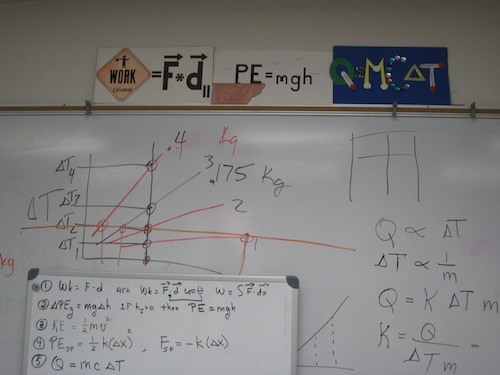 WORK = F * d ||
PE = mgh
Q = MC ΔT
.4 Kg
ΔT4
3
.175 Kg
ΔT3
ΔT
2
ΔT2
ΔT1
1
kg
Q ∝ ΔT
ΔT ∝ 1/m
Q = K ΔT m
K = Q / ΔT m =
① Wk = F·d Wk = F·d W = ∫ F·dx
② ΔPEg = mgΔh IF h₁=0 then PE = mgh
③ KE = ½mv²
④ PEsp = ½k(Δx)², Fsp = -k(Δx)
⑤ Q = mcΔT